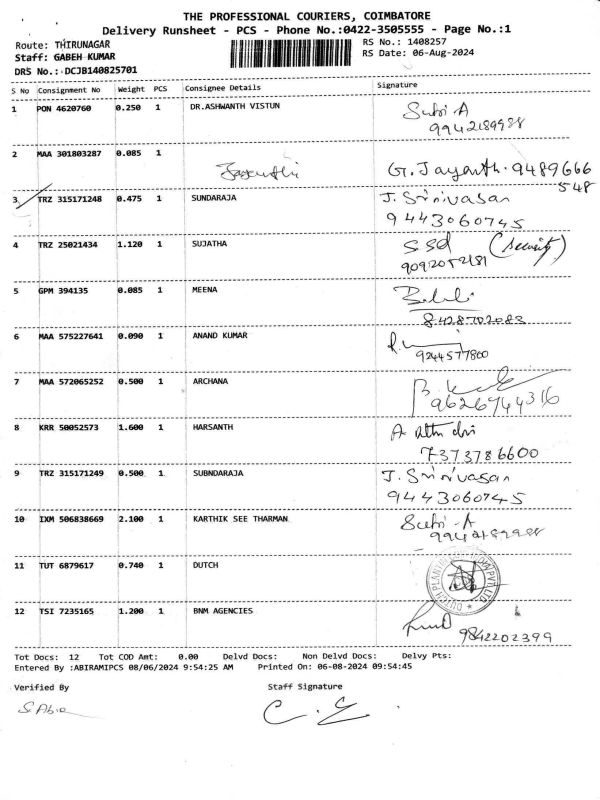 THE PROFESSIONAL COURIERS, COIMBATORE
Delivery Runsheet - PCS - Phone No.:0422-3505555 - Page No.:1
Route: THIRUNAGAR
RS No.: 1408257
Staff: GABEH KUMAR
RS Date: 06-Aug-2024
DRS No.: DCJB140825701
S No Consignment No Weight PCS Consignee Details Signature
1 PON 4620760 0.250 1 DR.ASHWANTH VISTUN
Subi A
9942189988
2 MAA 301803287 0.085 1
Jayanthi G. Jayanthi. 9489666
548
3 TRZ 315171248 0.475 1 SUNDARAJA J. Srinivasan
9443060745
4 TRZ 25021434 1.120 1 SUJATHA (Security)
9092052181
5 GPM 394135 0.085 1 MEENA
8428702083
6 MAA 575227641 0.090 1 ANAND KUMAR
9244577800
7 MAA 572065252 0.500 1 ARCHANA
9626744316
8 KRR 50052573 1.600 1 HARSANTH A
7373786600
9 TRZ 315171249 0.500 1 SUBNDARAJA J. Srinivasan
9443060745
10 IXM 506838669 2.100 1 KARTHIK SEE THARMAN Subi -A
9942189988
11 TUT 6879617 0.740 1 DUTCH
12 TSI 7235165 1.200 1 BNM AGENCIES
9842202399
Tot Docs: 12 Tot COD Amt: 0.00 Delvd Docs: Non Delvd Docs: Delvy Pts:
Entered By :ABIRAMIPCS 08/06/2024 9:54:25 AM Printed On: 06-08-2024 09:54:45
Verified By Staff Signature
S. Abia